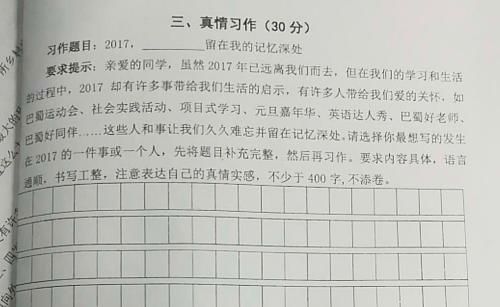 三、真情习作（30分）
习作题目：2017，__________留在我的记忆深处
要求提示：亲爱的同学，虽然 2017 年已远离我们而去，但在我们的学习和生活
的过程中，2017 却有许多事带给我们生活的启示，有许多人带给我们爱的关怀，如
巴蜀运动会、社会实践活动、项目式学习、元旦嘉年华、英语达人秀、巴蜀好老师、
巴蜀好同伴……这些人和事让我们久久难忘并留在记忆深处。请选择你最想写的发生
在 2017 的一件事或一个人，先将题目补充完整，然后再习作。要求内容具体，语言
通顺，书写工整，注意表达自己的真情实感，不少于 400 字,不添卷。